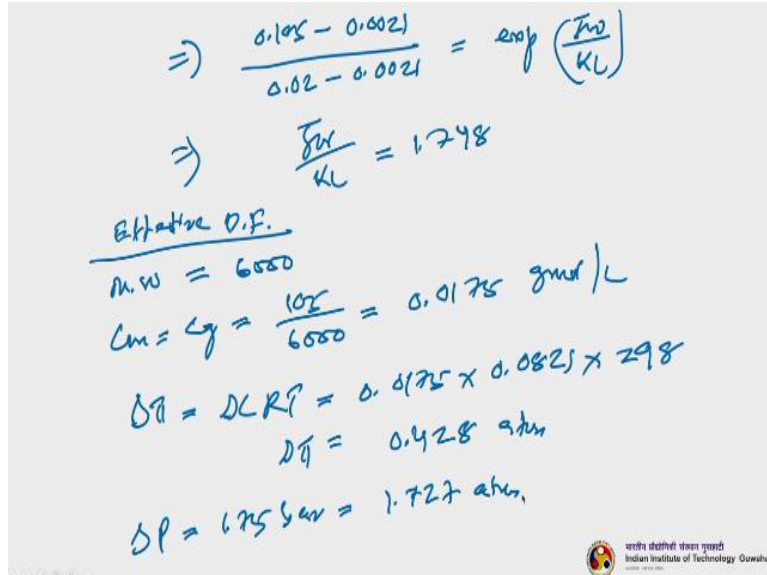 ⇒) (0.105 - 0.0021)/(0.02 - 0.0021) = exp (Jw/KL)
⇒) Jw/KL = 1.748
Effective D.F.
M.W = 6000
Cm = Cg = 105/6000 = 0.0175 gmol/L
Δπ = ΔCRT = 0.0175 × 0.0821 × 298
Δπ = 0.428 atm
ΔP = 1.75 bar = 1.727 atm.
भारतीय प्रौद्योगिकी संस्थान गुवाहाटी
Indian Institute of Technology Guwaha